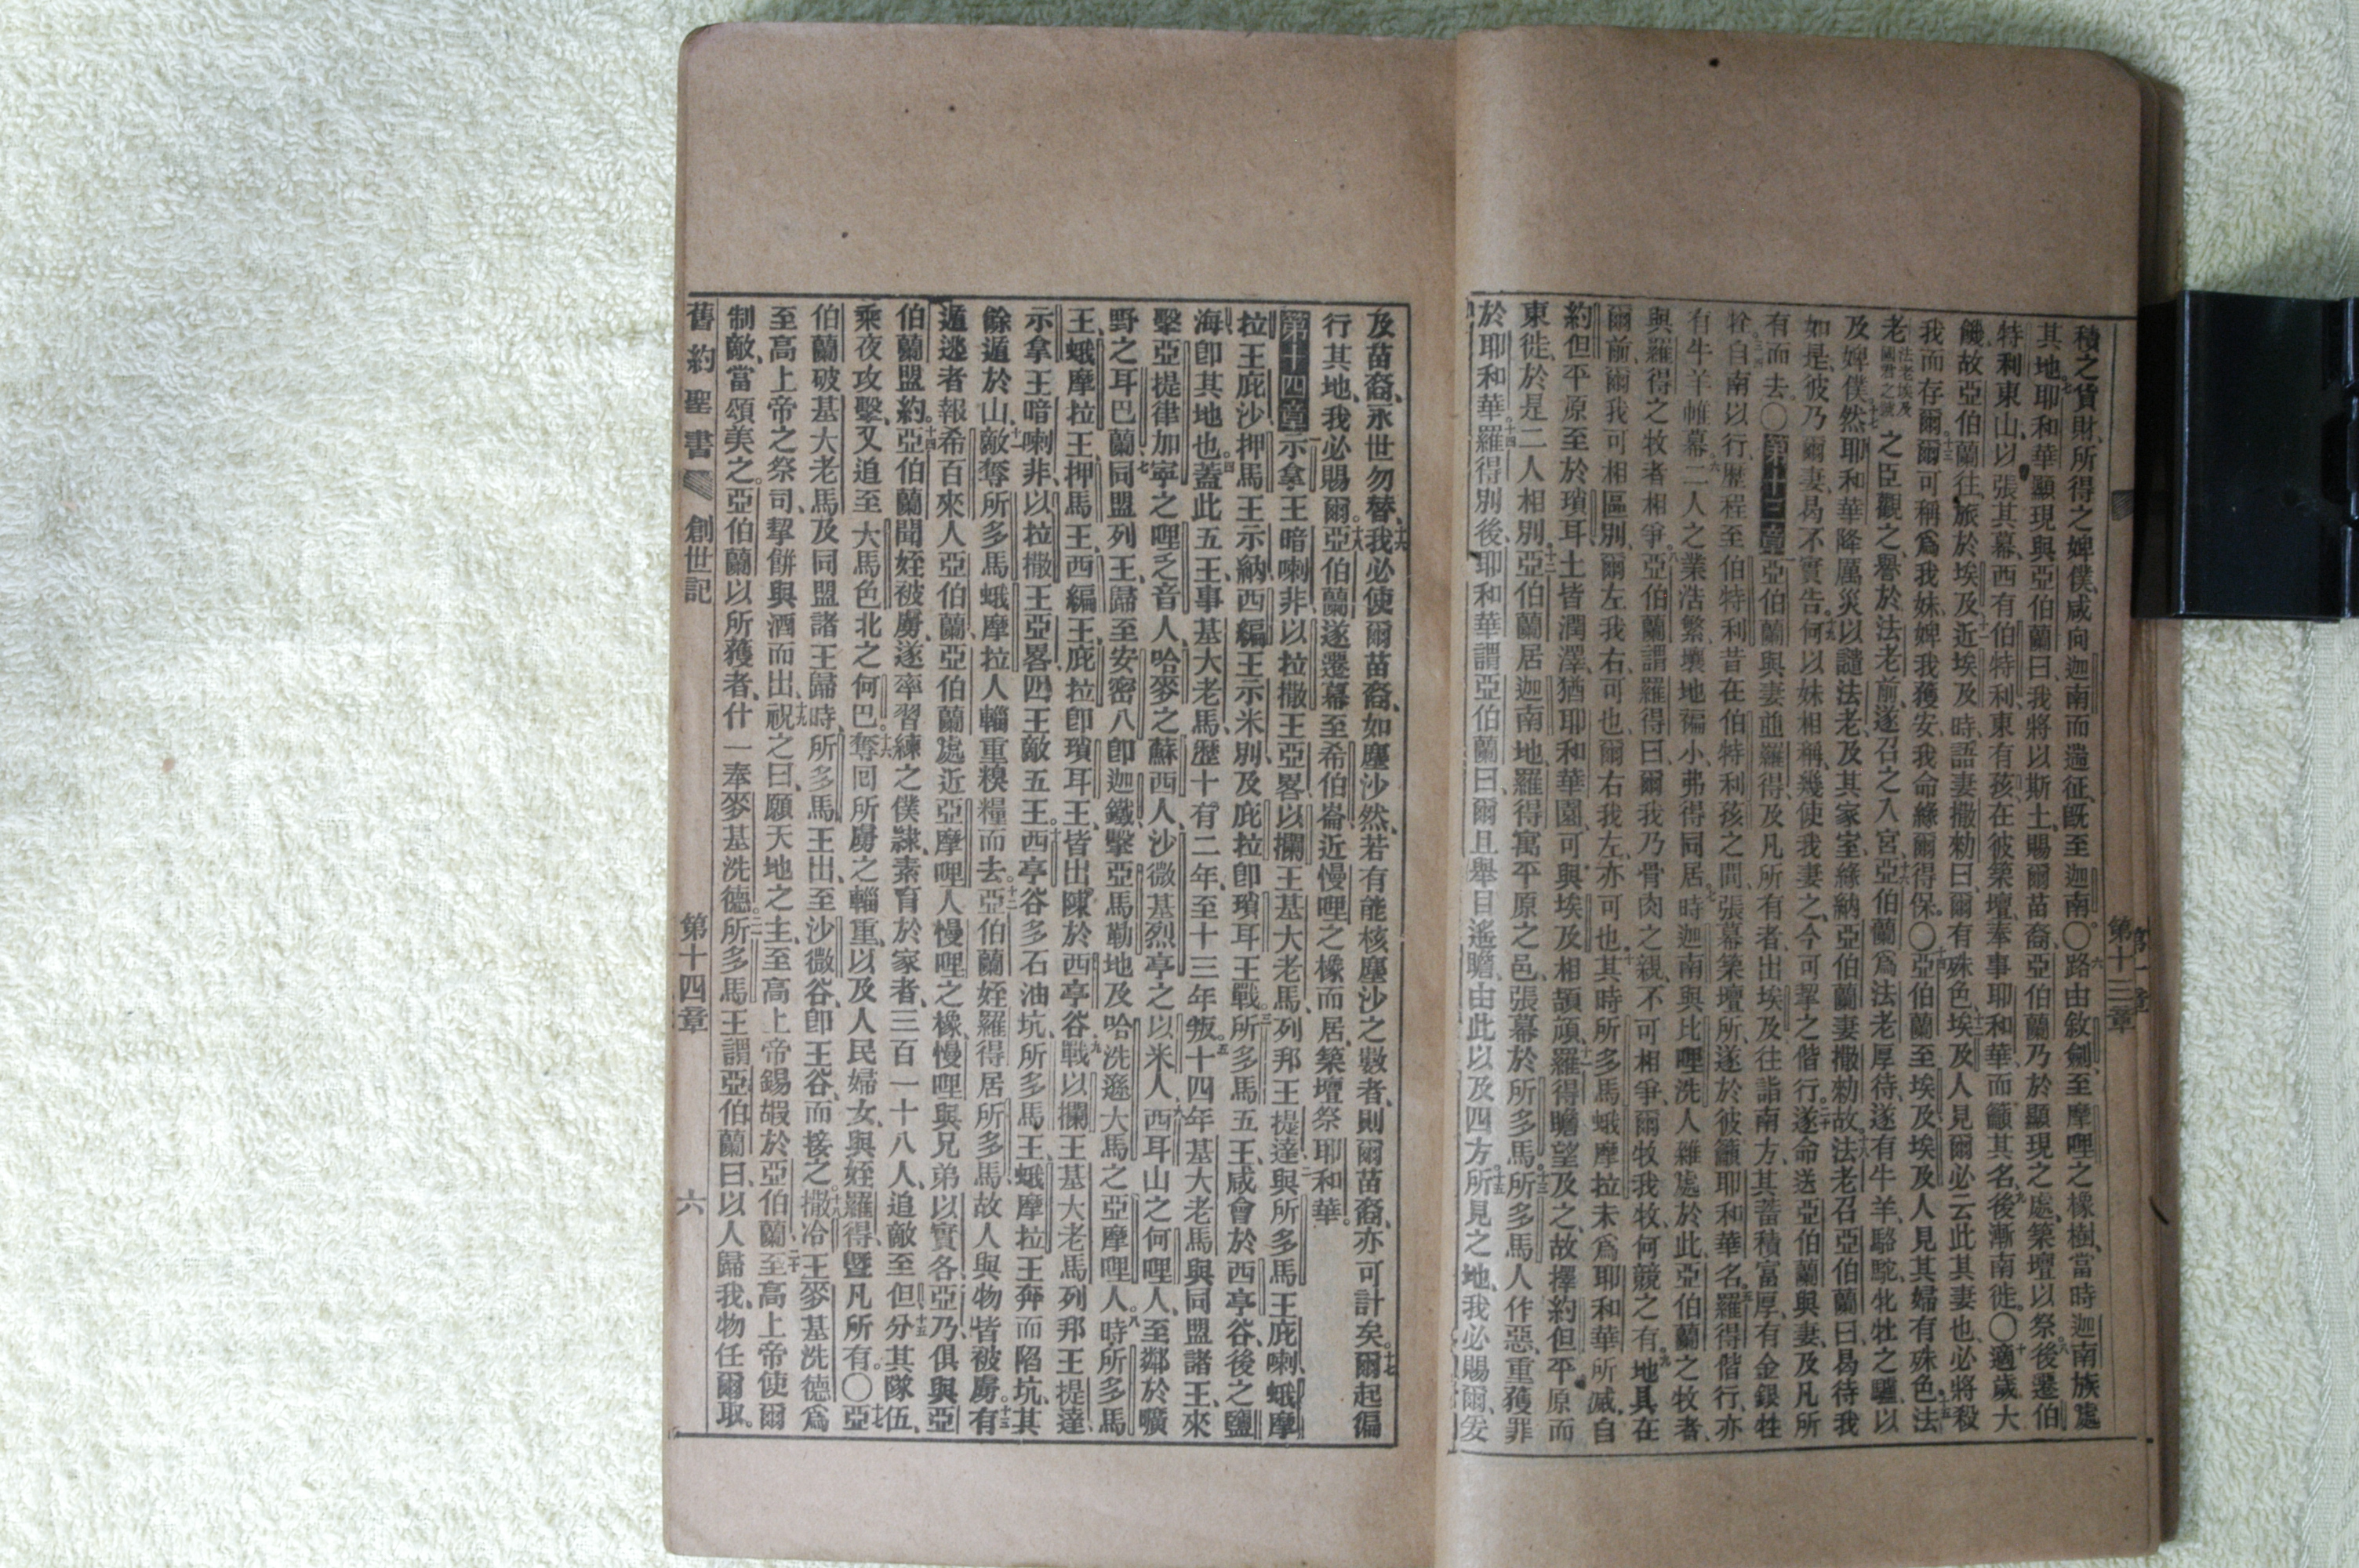 積之貨財、所得之婢僕、咸向迦南而遄征、旣至迦南。〇六路由敘劍、至摩哩之橡樹、當時迦南族處
其地、七耶和華顯現與亞伯蘭曰、我將以斯土、賜爾苗裔、亞伯蘭乃於顯現之處、築壇以祭。八後遷伯
特利東山、以張其幕、西有伯特利、東有孩、在彼築壇、奉事耶和華、而籲其名、九後漸南徙。〇十適歲大
饑、故亞伯蘭往旅於埃及、十一近埃及時、語妻撒勑曰、爾有殊色、十二埃及人見爾、必云此其妻也、必將殺
我而存爾、十三爾可稱爲我妹、婢我獲安、我命緣爾得保。〇十四亞伯蘭至埃及、埃及人見其婦有殊色、十五法
老法老埃及國君之號之臣觀之、譽於法老前、遂召之入宮、十六亞伯蘭爲法老厚待、遂有牛羊、駱駝、牝牡之驢、以
及婢僕、十七然耶和華降厲災、以譴法老、及其家室、緣納亞伯蘭妻撒勑故、十八法老召亞伯蘭曰、曷待我
如是、彼乃爾妻、曷不實告、十九何以妹相稱、幾使我妻之、今可挈之偕行。二十遂命送亞伯蘭與妻、及凡所
有而去。〇第十三章亞伯蘭與妻、並羅得、及凡所有者、出埃及、往詣南方、其蓄積富厚、有金銀牲
牷、自南以行、歷程至伯特利、昔在伯特利孩之間、張幕築壇所、遂於彼籲耶和華名、五羅得偕行、亦
有牛羊帷幕、六二人之業浩繁、壤地褊小、弗得同居、七時迦南與比哩洗人雜處於此、亞伯蘭之牧者、
與羅得之牧者相爭、八亞伯蘭謂羅得曰、爾我乃骨肉之親、不可相爭、爾牧我牧、何競之有、九地具在
爾前、爾我可相區別、爾左我右、可也、爾右我左、亦可也、十其時所多馬蛾摩拉、未爲耶和華所滅、自
約但平原、至於瑣耳、土皆潤澤、猶耶和華園、可與埃及相頡頏、十一羅得瞻望及之、故擇約但平原而
東徙、於是二人相別、十二亞伯蘭居迦南地、羅得寓平原之邑、張幕於所多馬。十三所多馬人作惡、重獲罪
於耶和華。十四羅得別後、耶和華謂亞伯蘭曰、爾且舉目遙瞻、由此以及四方、十五所見之地、我必賜爾、爰
第十三章
及苗裔、永世勿替、十六我必使爾苗裔、如塵沙然、若有能核塵沙之數者、則爾苗裔、亦可計矣。十七爾起徧
行其地、我必賜爾。十八亞伯蘭遂遷幕、至希伯崙、近慢哩之橡而居、築壇祭耶和華。
第十四章一示拿王暗喇非、以拉撒王亞畧、以攔王基大老馬、列邦王提達、二與所多馬王庇喇、蛾摩
拉王庇沙、押馬王示納、西編王示米別、及庇拉卽瑣耳王戰。三所多馬五王、咸會於西亭谷、後之鹽
海卽其地也。四蓋此五王、事基大老馬、歷十有二年、至十三年叛。五十四年、基大老馬與同盟諸王、來
擊亞提律加寧之哩乏音人、哈麥之蘇西人、沙微基烈亭之以米人、六西耳山之何哩人、至鄰於曠
野之耳巴蘭、七同盟列王、歸至安密八卽迦鐵、擊亞馬勒地、及哈洗遜大馬之亞摩哩人。八時所多馬
王、蛾摩拉王、押馬王、西編王、庇拉卽瑣耳王、皆出陳於西亭谷、九戰以攔王基大老馬、列邦王提達、
示拿王暗喇非、以拉撒王亞畧、四王敵五王。十西亭谷多石油坑、所多馬王、蛾摩拉王奔而陷坑、其
餘遁於山、十一敵奪所多馬蛾摩拉人輜重糗糧而去。十二亞伯蘭姪羅得居所多馬、故人與物皆被虜。十三有
遁逃者、報希百來人亞伯蘭、亞伯蘭處近亞摩哩人慢哩之橡、慢哩與兄弟以實各、亞乃、俱與亞
伯蘭盟約。十四亞伯蘭聞姪被虜、遂率習練之僕隸、素育於家者、三百一十八人、追敵至但、十五分其隊伍、
乘夜攻擊、又追至大馬色北之何巴。十六奪回所虜之輜重、以及人民婦女、與姪羅得、曁凡所有。〇十七亞
伯蘭破基大老馬、及同盟諸王歸時、所多馬王出、至沙微谷、卽王谷、而接之。十八撒冷王麥基洗德爲
至高上帝之祭司、挈餅與酒而出、十九祝之曰、願天地之主、至高上帝、錫嘏於亞伯蘭、二十至高上帝使爾
制敵、當頌美之。亞伯蘭以所獲者、什一奉麥基洗德。二一所多馬王謂亞伯蘭曰、以人歸我、物任爾取。
舊約聖書 創世記 第十四章 六